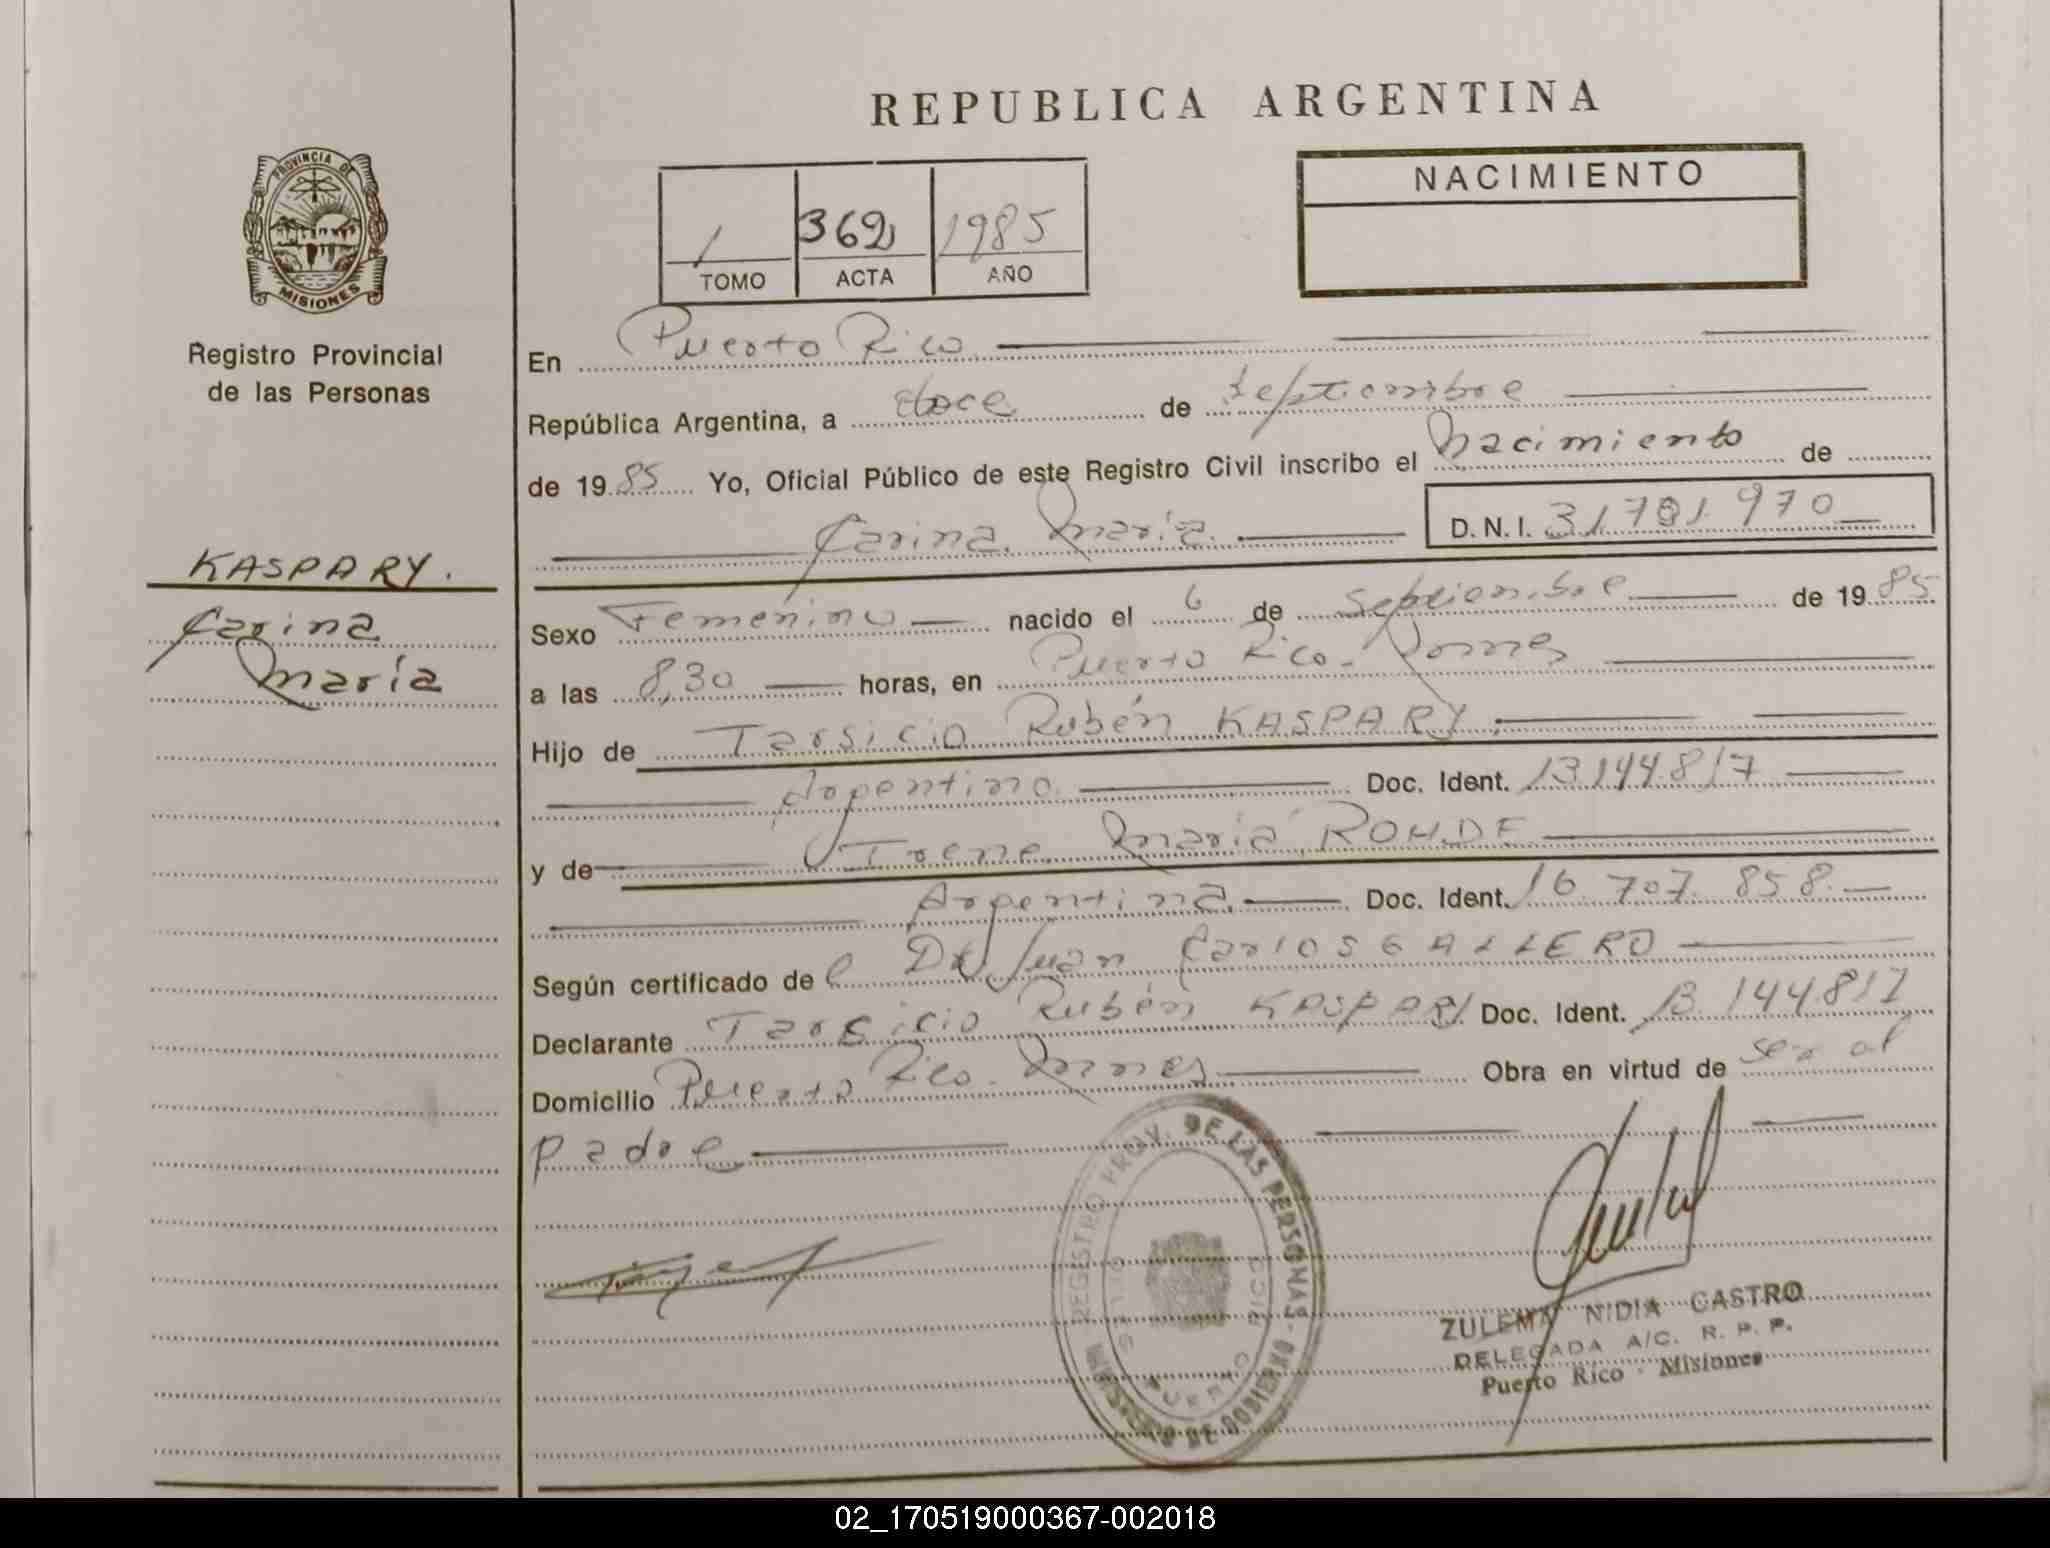 REPUBLICA ARGENTINA
PROVINCIA DE
MISIONES
Registro Provincial
de las Personas
NACIMIENTO
1 362 1985
TOMO ACTA AÑO
En Puerto Rico
República Argentina, a doce de Septiembre
de 1985 Yo, Oficial Público de este Registro Civil inscribo el Nacimiento de
Carina María D.N.I. 31.781.970
KASPARY.
Carina
María
Sexo Femenino nacido el 6 de Septiembre de 1985
a las 8,30 horas, en Puerto Rico - Mnes
Hijo de Tarsicio Rubén KASPARY
Argentino Doc. Ident. 13.144.817
y de Irene María ROHDE
Argentina Doc. Ident. 16.707.858
Según certificado del Dr. Juan Carlos GALLERO
Declarante Tarsicio Rubén KASPARY Doc. Ident. 13.144.817
Domicilio Puerto Rico - Mnes Obra en virtud de ser el
padre
REGISTRO PROV. DE LAS PERSONAS - MINISTERIO DE GOBIERNO
PUERTO RICO
ZULEMA NIDIA CASTRO
DELEGADA A/C. R. P. P.
Puerto Rico - Misiones
02_170519000367-002018